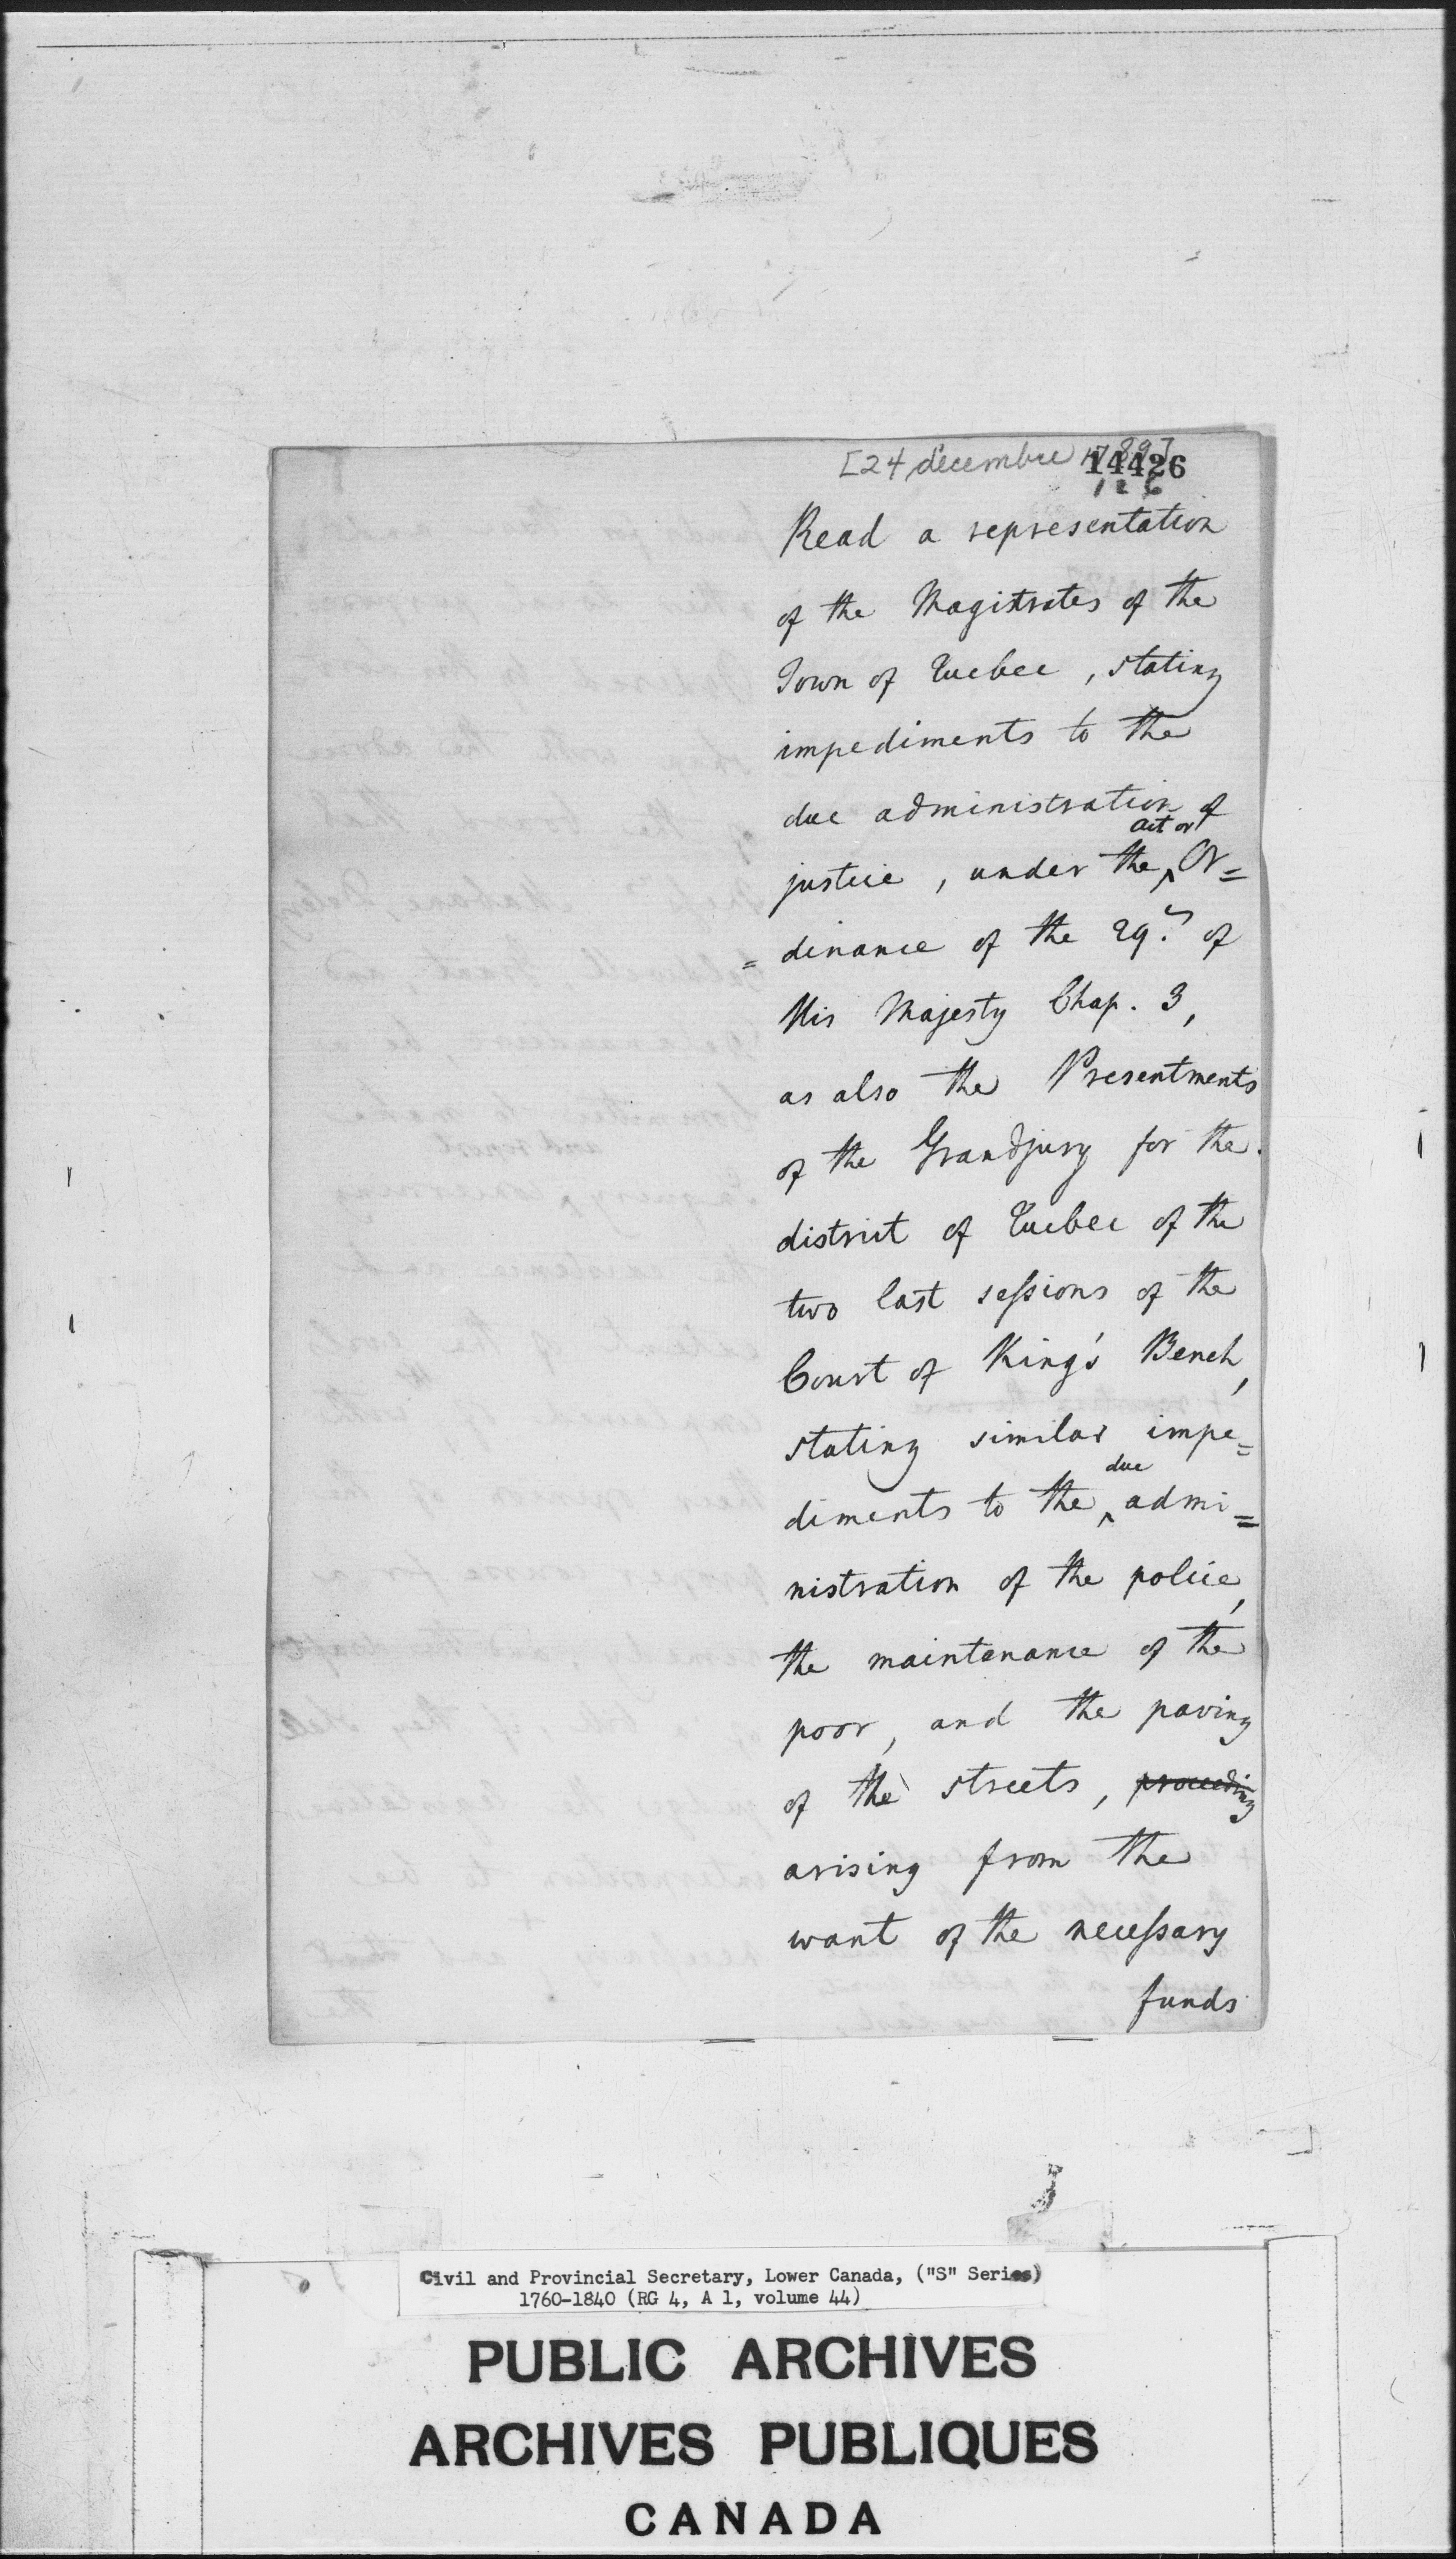 [24 decembre 1789]
14426
126
Read a representation
of the Magistrates of the
Town of Quebec, stating
impediments to the
due administration of
act or
justice, under the ^ Or=
=dinance of the 29.th of
His Majesty Chap. 3,
as also the Presentments
of the Grandjury for the
district of Quebec of the
two last sessions of the
Court of King's Bench,
stating similar impe=
due
diments to the ^ admi=
nistration of the police,
the maintenance of the
poor, and the paving
of the streets, proceeding
arising from the
want of the necessary
funds
Civil and Provincial Secretary, Lower Canada, ("S" Series)
1760-1840 (RG 4, A 1, volume 44)
PUBLIC ARCHIVES
ARCHIVES PUBLIQUES
CANADA